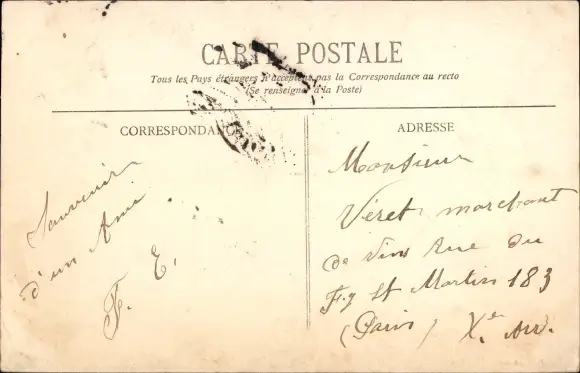 CARTE POSTALE
Tous les Pays étrangers n'acceptent pas la Correspondance au recto
(Se renseigner à la Poste)
CORRESPONDANCE
Souvenir
d'un Ami
F. E.
ADRESSE
Monsieur
Véret marchant
de vins Rue du
Fg St Martin 183
(Paris) Xe Arr.